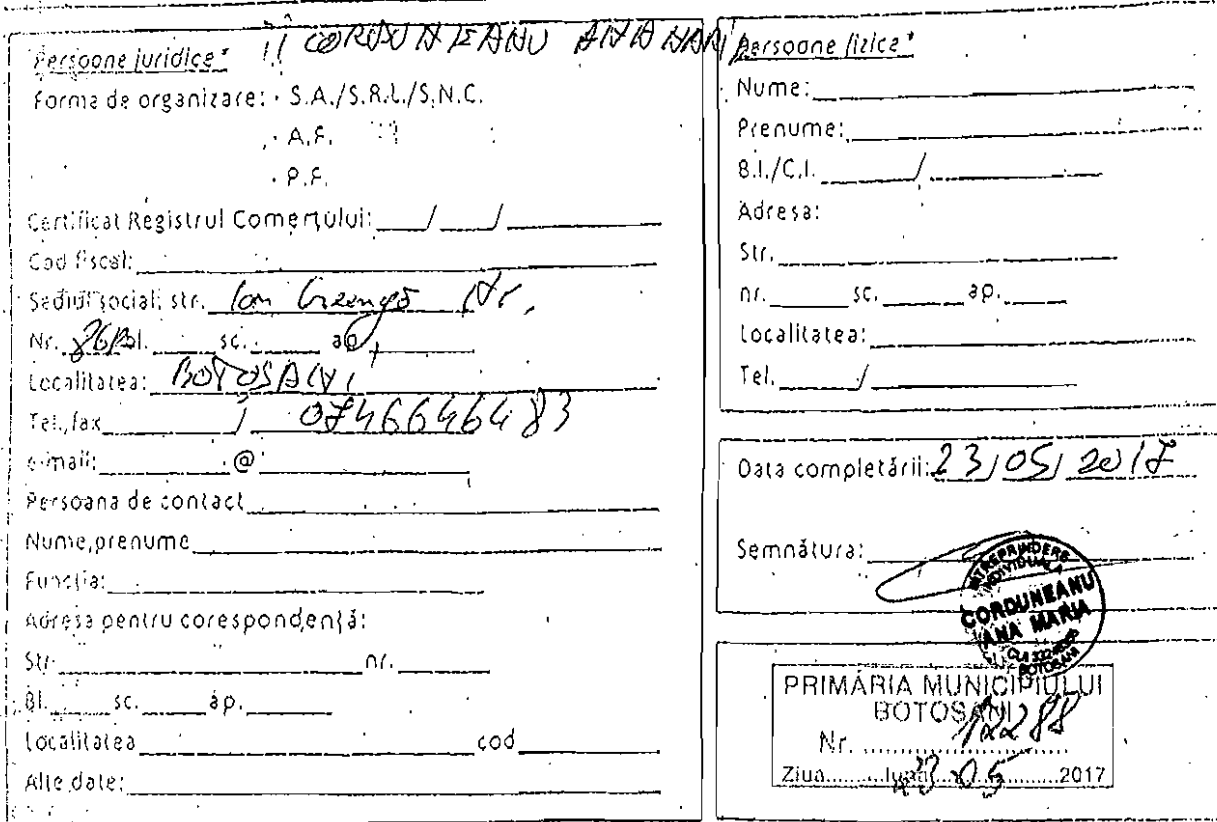 Persoane juridice*
I.I CORDUNEANU ANA MARI
Forma de organizare: · S.A./S.R.L./S.N.C.
· A.F.
· P.F.
Certificat Registrul Comerțului: ____/____/____
Cod fiscal:
Sediul social: str. Ion Creangă Nr.
Nr. bl. sc. ap.
Localitatea: BOTOSANI
Tel./fax / 0746646483
e-mail: @
Persoana de contact
Nume, prenume
Funcția:
Adresa pentru corespondență:
Str. nr.
Bl. sc. ap.
Localitatea cod
Alte date:
Persoane fizice*
Nume:
Prenume:
B.I./C.I. /
Adresa:
Str.
nr. sc. ap.
Localitatea:
Tel. /
Data completării: 23/05/2017
Semnătura:
ÎNTREPRINDERE
INDIVIDUALA
CORDUNEANU
ANA MARIA
BOTOSANI
PRIMĂRIA MUNICIPIULUI
BOTOȘANI
Nr. 12288
Ziua 23 luna 05 2017